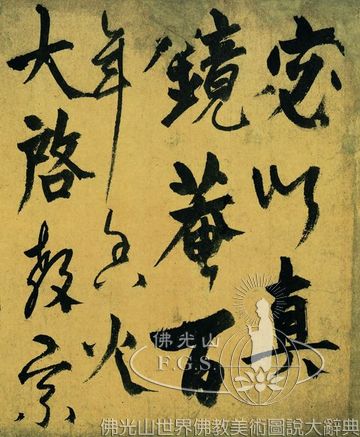 以真
鏡菴百
年香火
大啓教宗
佛光山
F.G.S.
佛光山世界佛教美術圖說大辭典